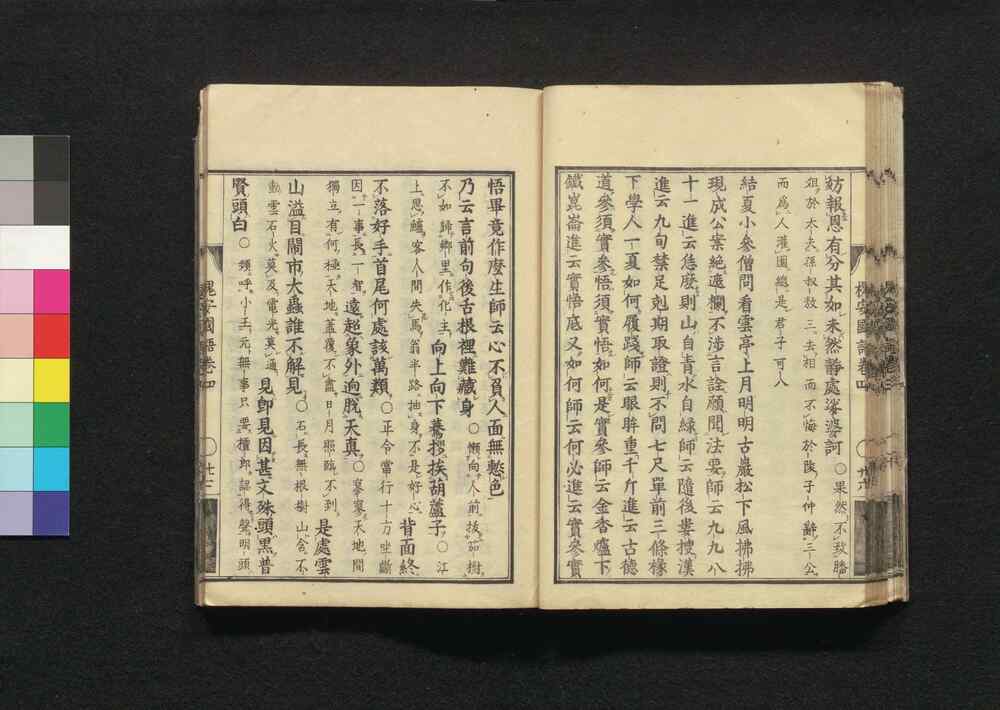 妨報恩有分其如未然靜處娑婆訶○果然不致膰
俎於大夫孫叔敖三去相而不悔於陵子仲辭三公
而爲人灌園總是君子可八
結夏小參僧問看雲亭上月明明古巖松下風拂拂
現成公案絶遮攔不涉言詮願聞法要師云九九八
十一進云恁麼則山自青水自綠師云隨後婁搜漢
進云九旬禁足剋期取證則不問七尺單前三條椽
下學人一夏如何履踐師云眼眸重千斤進云古德
道參須實參悟須實悟如何是實參師云金香爐下
鐵崑崙進云實悟底又如何師云何必進云實參實
槐安國語卷四
悟畢竟作麼生師云心不負人面無慙色
乃云言前句後舌根裡難藏身○懶向人前拔茄樹
不如歸鄉里作化主向上向下驀拶挨葫蘆子○江
上思鱸客人間失馬翁半路抽身不是好心背面終
不落好手首尾何處該萬類○正令當行十方坐斷
因一事長一智遠超象外逈脫天真○寥寥天地間
獨立有何極天地蓋覆不盡日月照臨不到是處雲
山溢目鬧市大蟲誰不解見○石長無根樹山含不
動雲石火莫及電光莫通見卽見因甚文殊頭黑普
賢頭白○頻呼小玉元無事只要檀郎認得聲明頭
槐安國語卷四